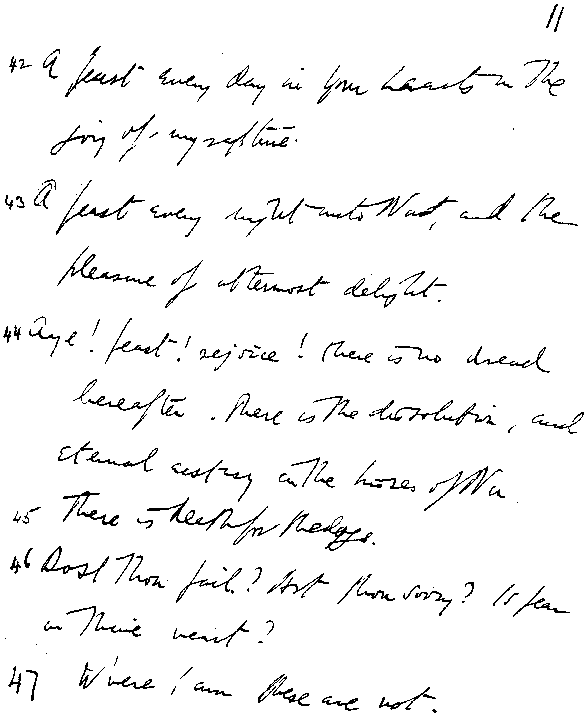 11
42 A feast every day in your hearts in the
joy of my rapture.
43 A feast every night unto Nuit, and the
pleasure of uttermost delight.
44 Aye! feast! rejoice! there is no dread
hereafter. There is the dissolution, and
eternal ecstasy in the kisses of Nu
45 There is death for the dogs.
46 Dost thou fail? Art thou sorry? Is fear
in thine heart?
47 Where I am these are not.